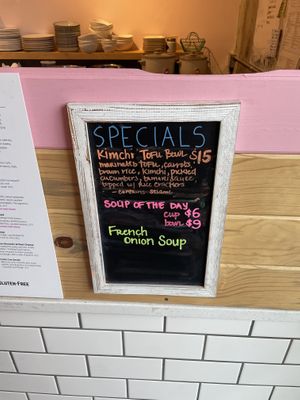 SPECIALS
Kimchi Tofu Bowl $15
marinated tofu, carrots,
brown rice, kimchi, pickled
cucumbers, tamari sauce,
topped w/ rice crackers
- contains sesame
SOUP OF THE DAY
cup $6
bowl $9
French
onion Soup
GLUTEN-FREE